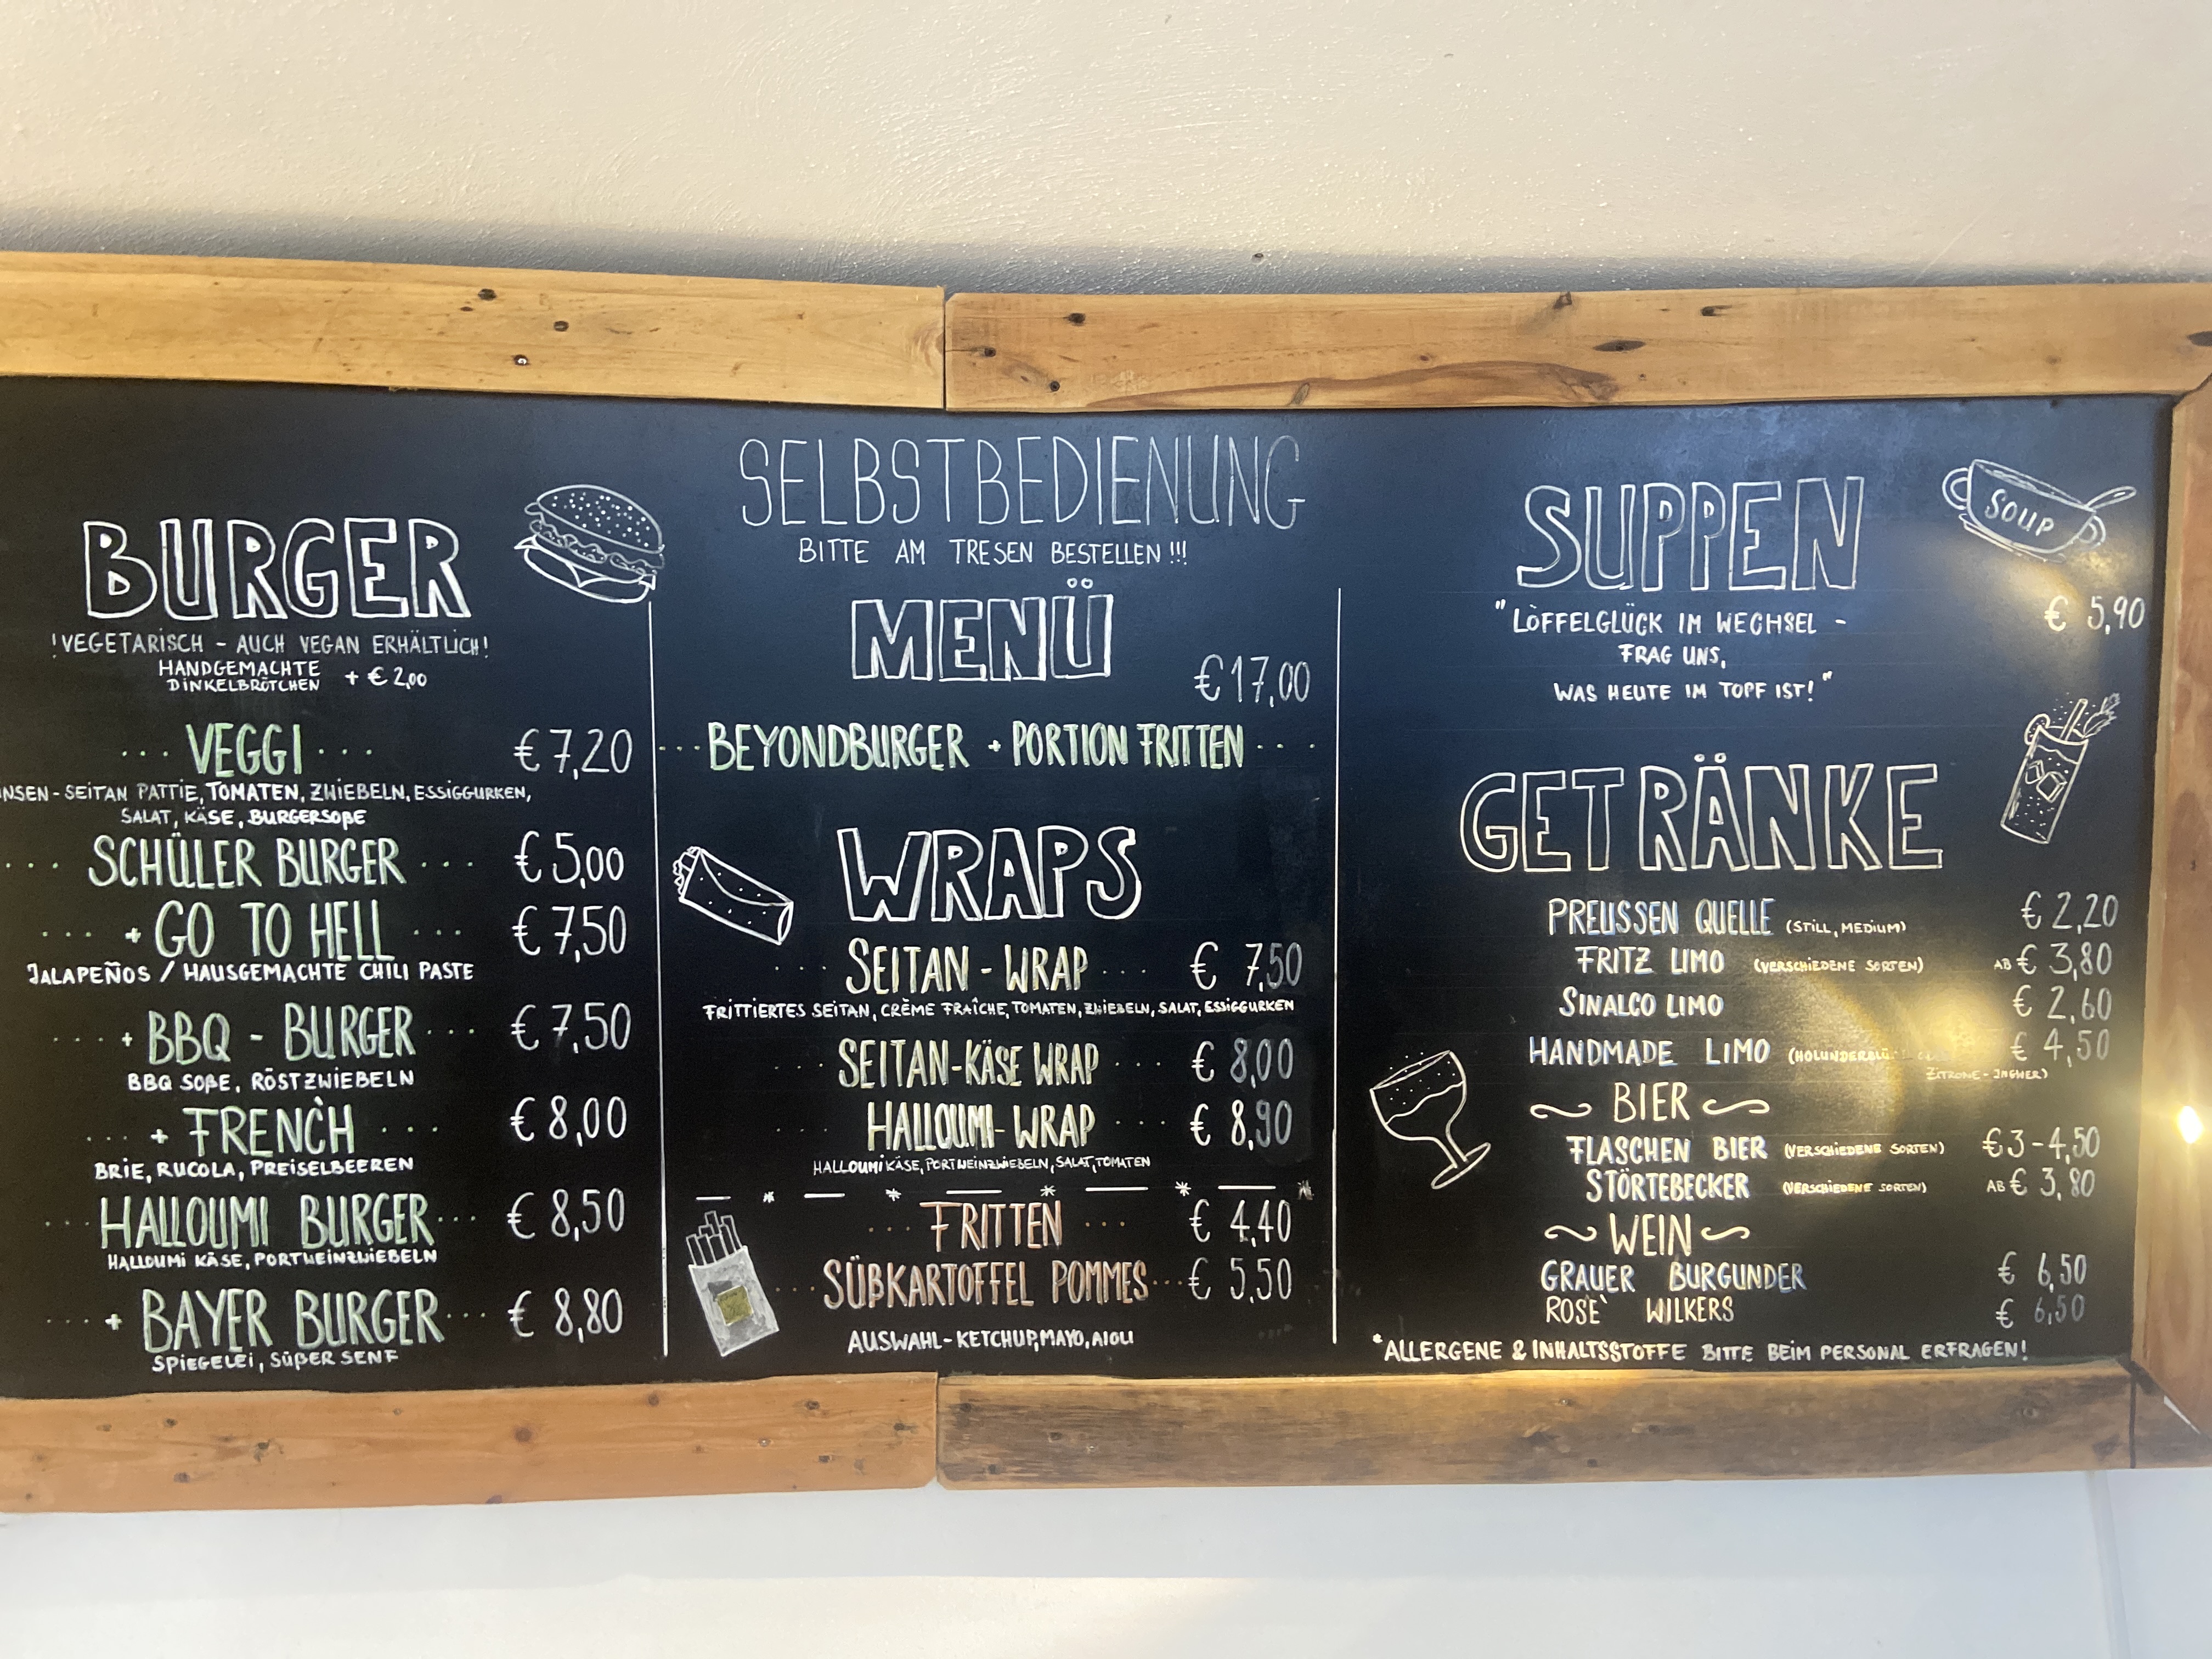 BURGER
!VEGETARISCH - AUCH VEGAN ERHÄLTLICH!
HANDGEMACHTE
DINKELBRÖTCHEN + € 2,00
... VEGGI ... € 7,20
NSEN - SEITAN PATTIE, TOMATEN, ZWIEBELN, ESSIGGURKEN,
SALAT, KÄSE, BURGERSOßE
... SCHÜLER BURGER ... € 5,00
... + GO TO HELL ... € 7,50
JALAPEÑOS / HAUSGEMACHTE CHILI PASTE
... + BBQ - BURGER ... € 7,50
BBQ SOßE, RÖSTZWIEBELN
... + FRENCH ... € 8,00
BRIE, RUCOLA, PREISELBEEREN
... HALLOUMI BURGER ... € 8,50
HALLOUMI KÄSE, PORTWEINZWIEBELN
... + BAYER BURGER ... € 8,80
SPIEGELEI, SÜßER SENF
SELBSTBEDIENUNG
BITTE AM TRESEN BESTELLEN !!!
MENÜ
€ 17,00
... BEYONDBURGER + PORTION FRITTEN ...
WRAPS
... SEITAN - WRAP ... € 7,50
FRITTIERTES SEITAN, CRÈME FRAÎCHE, TOMATEN, ZWIEBELN, SALAT, ESSIGGURKEN
... SEITAN-KÄSE WRAP ... € 8,00
... HALLOUMI-WRAP ... € 8,90
HALLOUMIKÄSE, PORTWEINZWIEBELN, SALAT, TOMATEN
... FRITTEN ... € 4,40
... SÜßKARTOFFEL POMMES ... € 5,50
AUSWAHL - KETCHUP, MAYO, AIOLI
SUPPEN
SOUP
"LÖFFELGLÜCK IM WECHSEL - € 5,90
FRAG UNS,
WAS HEUTE IM TOPF IST!"
GETRÄNKE
PREUSSEN QUELLE (STILL, MEDIUM) € 2,20
FRITZ LIMO (VERSCHIEDENE SORTEN) AB € 3,80
SINALCO LIMO € 2,60
HANDMADE LIMO € 4,50
ZITRONE - INGWER)
~ BIER ~
FLASCHEN BIER (VERSCHIEDENE SORTEN) € 3 - 4,50
STÖRTEBECKER (VERSCHIEDENE SORTEN) AB € 3,80
~ WEIN ~
GRAUER BURGUNDER € 6,50
ROSE` WILKERS € 6,50
*ALLERGENE & INHALTSSTOFFE BITTE BEIM PERSONAL ERFRAGEN!